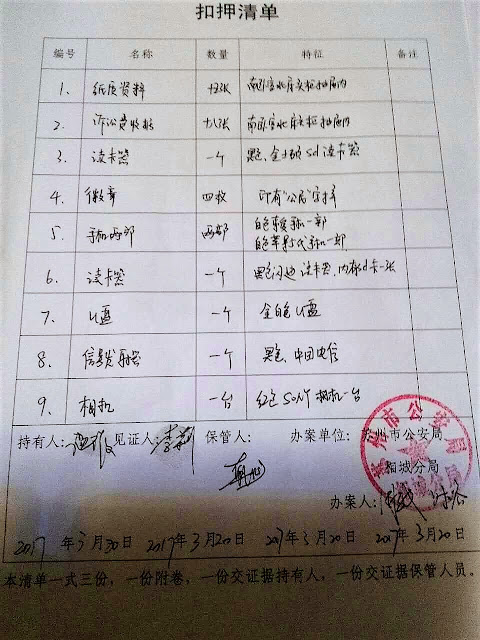 扣押清单
编号 名称 数量 特征 备注
1、 纸质资料 张 南卧室北床头柜抽屉内
2. 诉讼费收据 十八张 南卧室北床头柜抽屉内
3. 读卡器 一个 黑、sd读卡器
4. 徽章 四枚 印有"公民"字样
5、 手机两部 两部 白色手机一部
白色苹果5代手机一部
6. 读卡器 一个 黑色读卡器、内有sd卡一张
7. U盘 一个 金色U盘
8. 信号发射器 一个 黑色、中国电信
9. 相机 一台 红色SONY相机一台
持有人: 见证人: 李 保管人: 办案单位: 苏州市公安局
相城分局
办案人:
2017年3月20日 2017年3月20日 2017年3月20日 2017年3月20日
本清单一式三份，一份附卷，一份交证据持有人，一份交证据保管人员。